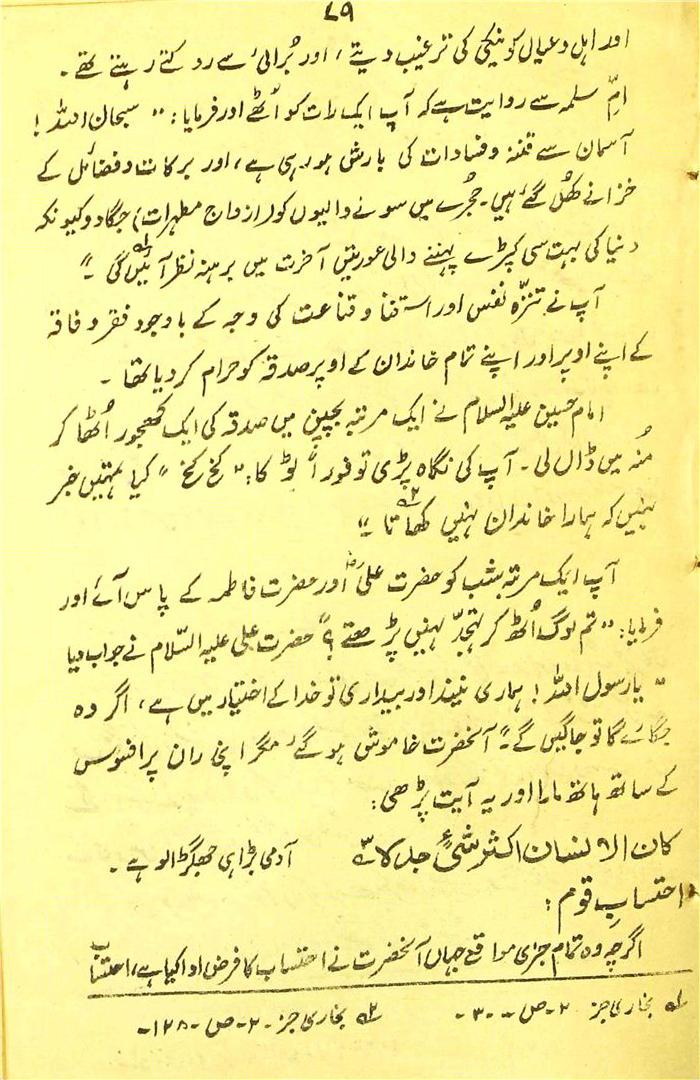 ۷۹
اور اہل و عیال کو نیکی کی ترغیب دیتے، اور بُرائی سے روکتے رہتے تھے۔
امِّ سلمہ سے روایت ہے کہ آپ ایک رات کو اُٹھے اور فرمایا: "سبحان اللہ!
آسمان سے فتنہ و فسادات کی بارش ہو رہی ہے، اور برکات و فضائل کے
خزانے کھُل گئے ہیں۔ حُجرے میں سونے والیوں کو (ازواج مطہرات) جگا دو کیونکہ
دنیا کی بہت سی کپڑے پہننے والی عورتیں آخرت میں برہنہ نظر آئیں گی لہ۔"
آپ نے تنزّہ نفس اور استغنا و قناعت کی وجہ کے باوجود فقر و فاقہ
کے اپنے اوپر اور اپنے تمام خاندان کے اوپر صدقہ کو حرام کر دیا تھا۔
امام حسین علیہ السلام نے ایک مرتبہ بچپن میں صدقہ کی ایک کھجور اُٹھا کر
مُنہ میں ڈال لی۔ آپ کی نگاہ پڑی تو فوراً ٹوکا: "کخ کخ" کیا تمہیں خبر
نہیں کہ ہمارا خاندان نہیں کھاتا ۲ہ۔"
آپ ایک مرتبہ شب کو حضرت علیؓ اور حضرت فاطمہ کے پاس آئے اور
فرمایا: "تم لوگ اُٹھ کر تہجّد نہیں پڑھتے؟" حضرت علی علیہ السّلام نے جواب دیا
"یا رسول اللہ! ہماری نیند اور بیداری تو خدا کے اختیار میں ہے، اگر وہ
جگائے گا تو جاگیں گے۔" آنحضرت خاموش ہو گئے، مگر اپنی ران پر افسوس
کے ساتھ ہاتھ مارا اور یہ آیت پڑھی:
کان الانسان اکثر شیءٍ جدلا آدمی بڑا ہی جھگڑالو ہے۔
احتسابِ قوم:
اگرچہ وہ تمام جزی مواقع جہاں آنحضرت نے احتساب کا فرض ادا کیا ہے، احتساب
لہ بخاری جز ۲۔ ص۔ ۳۰۔ ۲ہ بخاری جز۔ ۲۔ ص۔ ۱۲۸۔